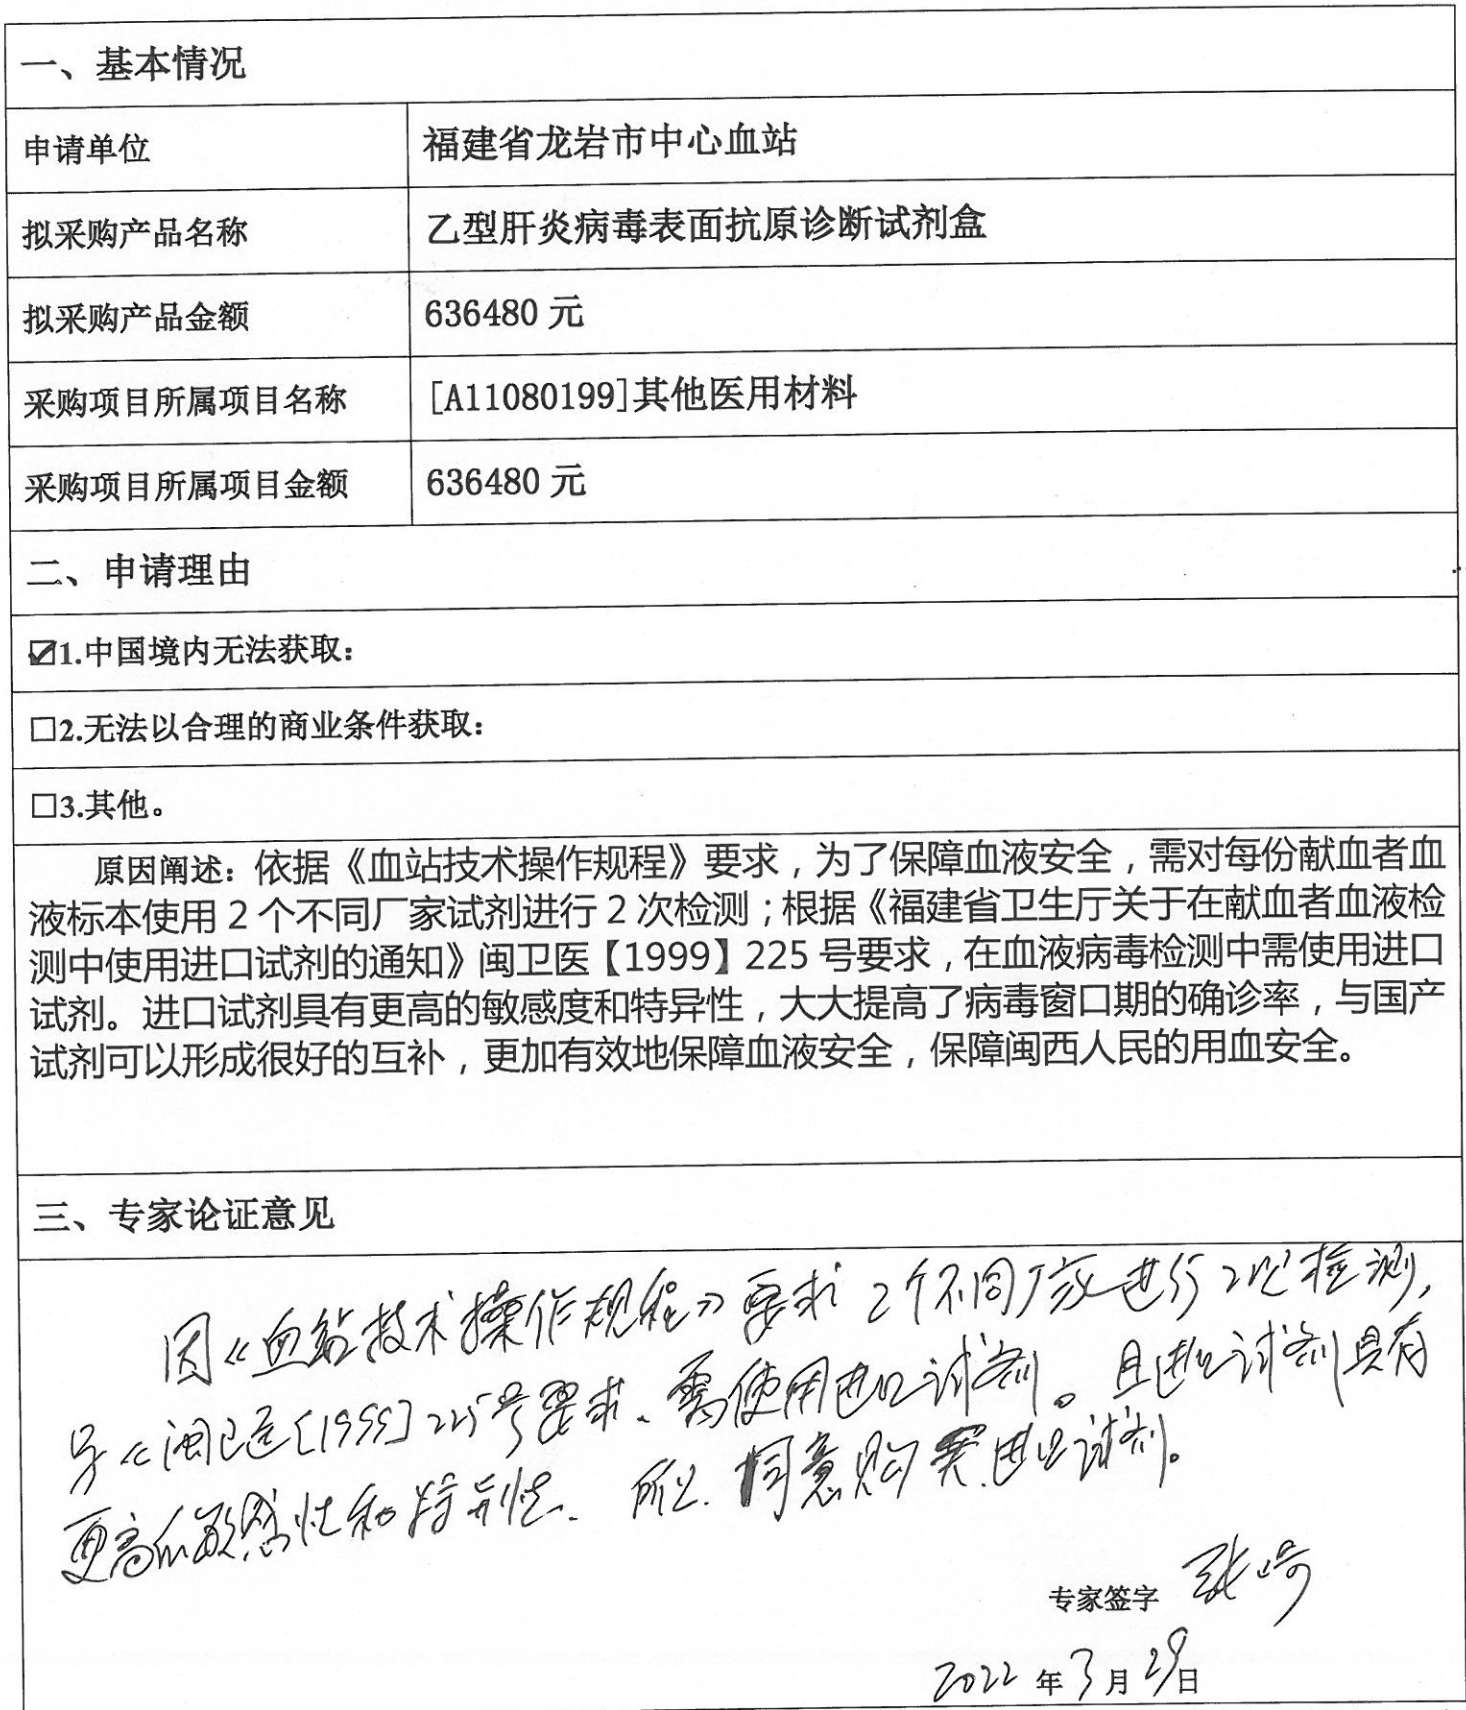 一、基本情况
申请单位 福建省龙岩市中心血站
拟采购产品名称 乙型肝炎病毒表面抗原诊断试剂盒
拟采购产品金额 636480 元
采购项目所属项目名称 [A11080199]其他医用材料
采购项目所属项目金额 636480 元
二、申请理由
☑1.中国境内无法获取：
□2.无法以合理的商业条件获取：
□3.其他。
原因阐述：依据《血站技术操作规程》要求，为了保障血液安全，需对每份献血者血
液标本使用 2 个不同厂家试剂进行 2 次检测；根据《福建省卫生厅关于在献血者血液检
测中使用进口试剂的通知》闽卫医【1999】225 号要求，在血液病毒检测中需使用进口
试剂。进口试剂具有更高的敏感度和特异性，大大提高了病毒窗口期的确诊率，与国产
试剂可以形成很好的互补，更加有效地保障血液安全，保障闽西人民的用血安全。
三、专家论证意见
因《血站技术操作规程》要求 2个不同厂家进行2次检测，
《闽卫医[1999]225号要求、需使用进口试剂。且进口试剂具有
更高的敏感性和特异性、所以、同意购买进口试剂。
专家签字 张
2022 年 3 月 29 日